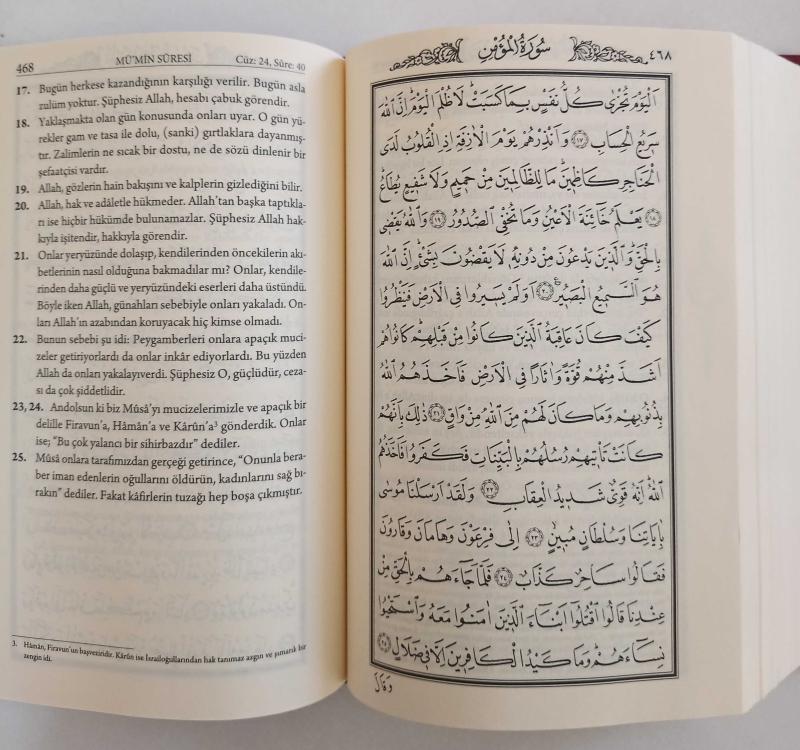 468 MÜ'MİN SÛRESİ Cüz: 24, Sûre: 40
17. Bugün herkese kazandığının karşılığı verilir. Bugün asla
zulüm yoktur. Şüphesiz Allah, hesabı çabuk görendir.
18. Yaklaşmakta olan gün konusunda onları uyar. O gün yü-
rekler gam ve tasa ile dolu, (sanki) gırtlaklara dayanmış-
tır. Zalimlerin ne sıcak bir dostu, ne de sözü dinlenir bir
şefaatçisi vardır.
19. Allah, gözlerin hain bakışını ve kalplerin gizlediğini bilir.
20. Allah, hak ve adâletle hükmeder. Allah'tan başka taptıkla-
rı ise hiçbir hükümde bulunamazlar. Şüphesiz Allah hak-
kıyla işitendir, hakkıyla görendir.
21. Onlar yeryüzünde dolaşıp, kendilerinden öncekilerin akı-
betlerinin nasıl olduğuna bakmadılar mı? Onlar, kendile-
rinden daha güçlü ve yeryüzündeki eserleri daha üstündü.
Böyle iken Allah, günahları sebebiyle onları yakaladı. On-
ları Allah'ın azabından koruyacak hiç kimse olmadı.
22. Bunun sebebi şu idi: Peygamberleri onlara apaçık muci-
zeler getiriyorlardı da onlar inkâr ediyorlardı. Bu yüzden
Allah da onları yakalayıverdi. Şüphesiz O, güçlüdür, ceza-
sı da çok şiddetlidir.
23, 24. Andolsun ki biz Mûsâ'yı mucizelerimizle ve apaçık bir
delille Firavun'a, Hâmân'a ve Kârûn'a³ gönderdik. Onlar
ise; "Bu çok yalancı bir sihirbazdır" dediler.
25. Mûsâ onlara tarafımızdan gerçeği getirince, "Onunla bera-
ber iman edenlerin oğullarını öldürün, kadınlarını sağ bı-
rakın" dediler. Fakat kâfirlerin tuzağı hep boşa çıkmıştır.
3. Hâmân, Firavun'un başveziridir. Kârûn ise İsrailoğullarından hak tanımaz azgın ve şımarık bir
zengin idi.
سُورَةُ الْمُؤْمِنِ ٤٦٨
اَلْيَوْمَ تُجْزٰى كُلُّ نَفْسٍ بِمَا كَسَبَتْۜ لَا ظُلْمَ الْيَوْمَۜ اِنَّ اللّٰهَ
سَرِيعُ الْحِسَابِ ﴿١٧﴾ وَاَنْذِرْهُمْ يَوْمَ الْاٰزِفَةِ اِذِ الْقُلُوبُ لَدَى
الْحَنَاجِرِ كَاظِمِينَۜ مَا لِلظَّالِمِينَ مِنْ حَمِيمٍ وَلَا شَفِيعٍ يُطَاعُۜ
﴿١٨﴾ يَعْلَمُ خَٓائِنَةَ الْاَعْيُنِ وَمَا تُخْفِي الصُّدُورُ ﴿١٩﴾ وَاللّٰهُ يَقْضِي
بِالْحَقِّۜ وَالَّذِينَ يَدْعُونَ مِنْ دُونِهِ لَا يَقْضُونَ بِشَيْءٍۜ اِنَّ اللّٰهَ
هُوَ السَّمِيعُ الْبَصِيرُ۟ ﴿٢٠﴾ اَوَلَمْ يَسِيرُوا فِي الْاَرْضِ فَيَنْظُرُوا
كَيْفَ كَانَ عَاقِبَةُ الَّذِينَ كَانُوا مِنْ قَبْلِهِمْۜ كَانُوا هُمْ
اَشَدَّ مِنْهُمْ قُوَّةً وَاٰثَارًا فِي الْاَرْضِ فَاَخَذَهُمُ اللّٰهُ
بِذُنُوبِهِمْۜ وَمَا كَانَ لَهُمْ مِنَ اللّٰهِ مِنْ وَاقٍ ﴿٢١﴾ ذٰلِكَ بِاَنَّهُمْ
كَانَتْ تَأْتِيهِمْ رُسُلُهُمْ بِالْبَيِّنَاتِ فَكَفَرُوا فَاَخَذَهُمُ
اللّٰهُۜ اِنَّهُ قَوِيٌّ شَدِيدُ الْعِقَابِ ﴿٢٢﴾ وَلَقَدْ اَرْسَلْنَا مُوسٰى
بِاٰيَاتِنَا وَسُلْطَانٍ مُبِينٍۙ ﴿٢٣﴾ اِلٰى فِرْعَوْنَ وَهَامَانَ وَقَارُونَ
فَقَالُوا سَاحِرٌ كَذَّابٌ ﴿٢٤﴾ فَلَمَّا جَٓاءَهُمْ بِالْحَقِّ مِنْ
عِنْدِنَا قَالُوا اقْتُلُٓوا اَبْنَٓاءَ الَّذِينَ اٰمَنُوا مَعَهُ وَاسْتَحْيُوا
نِسَٓاءَهُمْۜ وَمَا كَيْدُ الْكَافِرِينَ اِلَّا فِي ضَلَالٍ ﴿٢٥﴾
وَقَالَ